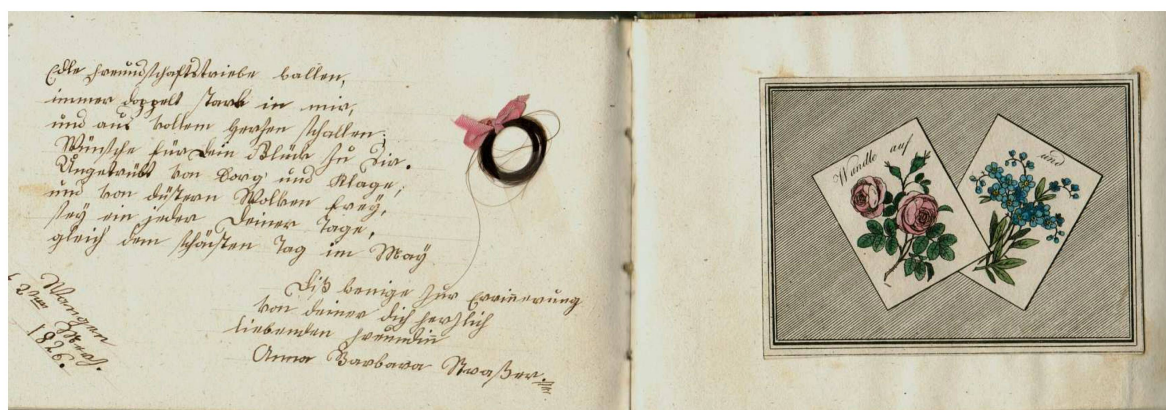 Edle Freundschaftstriebe wallen,
immer doppelt stark in mir,
und aus vollem Herzen schallen:
Wünsche für dein Glück zu Dir.
Ungetrübt von Sorg und Klage;
und von düstern Wolken freÿ,
seÿ ein jeder Deiner Tage,
gleich dem schönsten Tag im Maÿ
Diß wenige zur Erinerung
von deiner dich herzlich
liebenden Freundin
Anna Barbara Straßer.
Wangen
1826.
Wandle auf
und